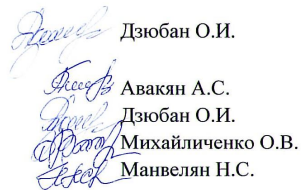 Дзюбан О.И.
Авакян А.С.
Дзюбан О.И.
Михайличенко О.В.
Манвелян Н.С.